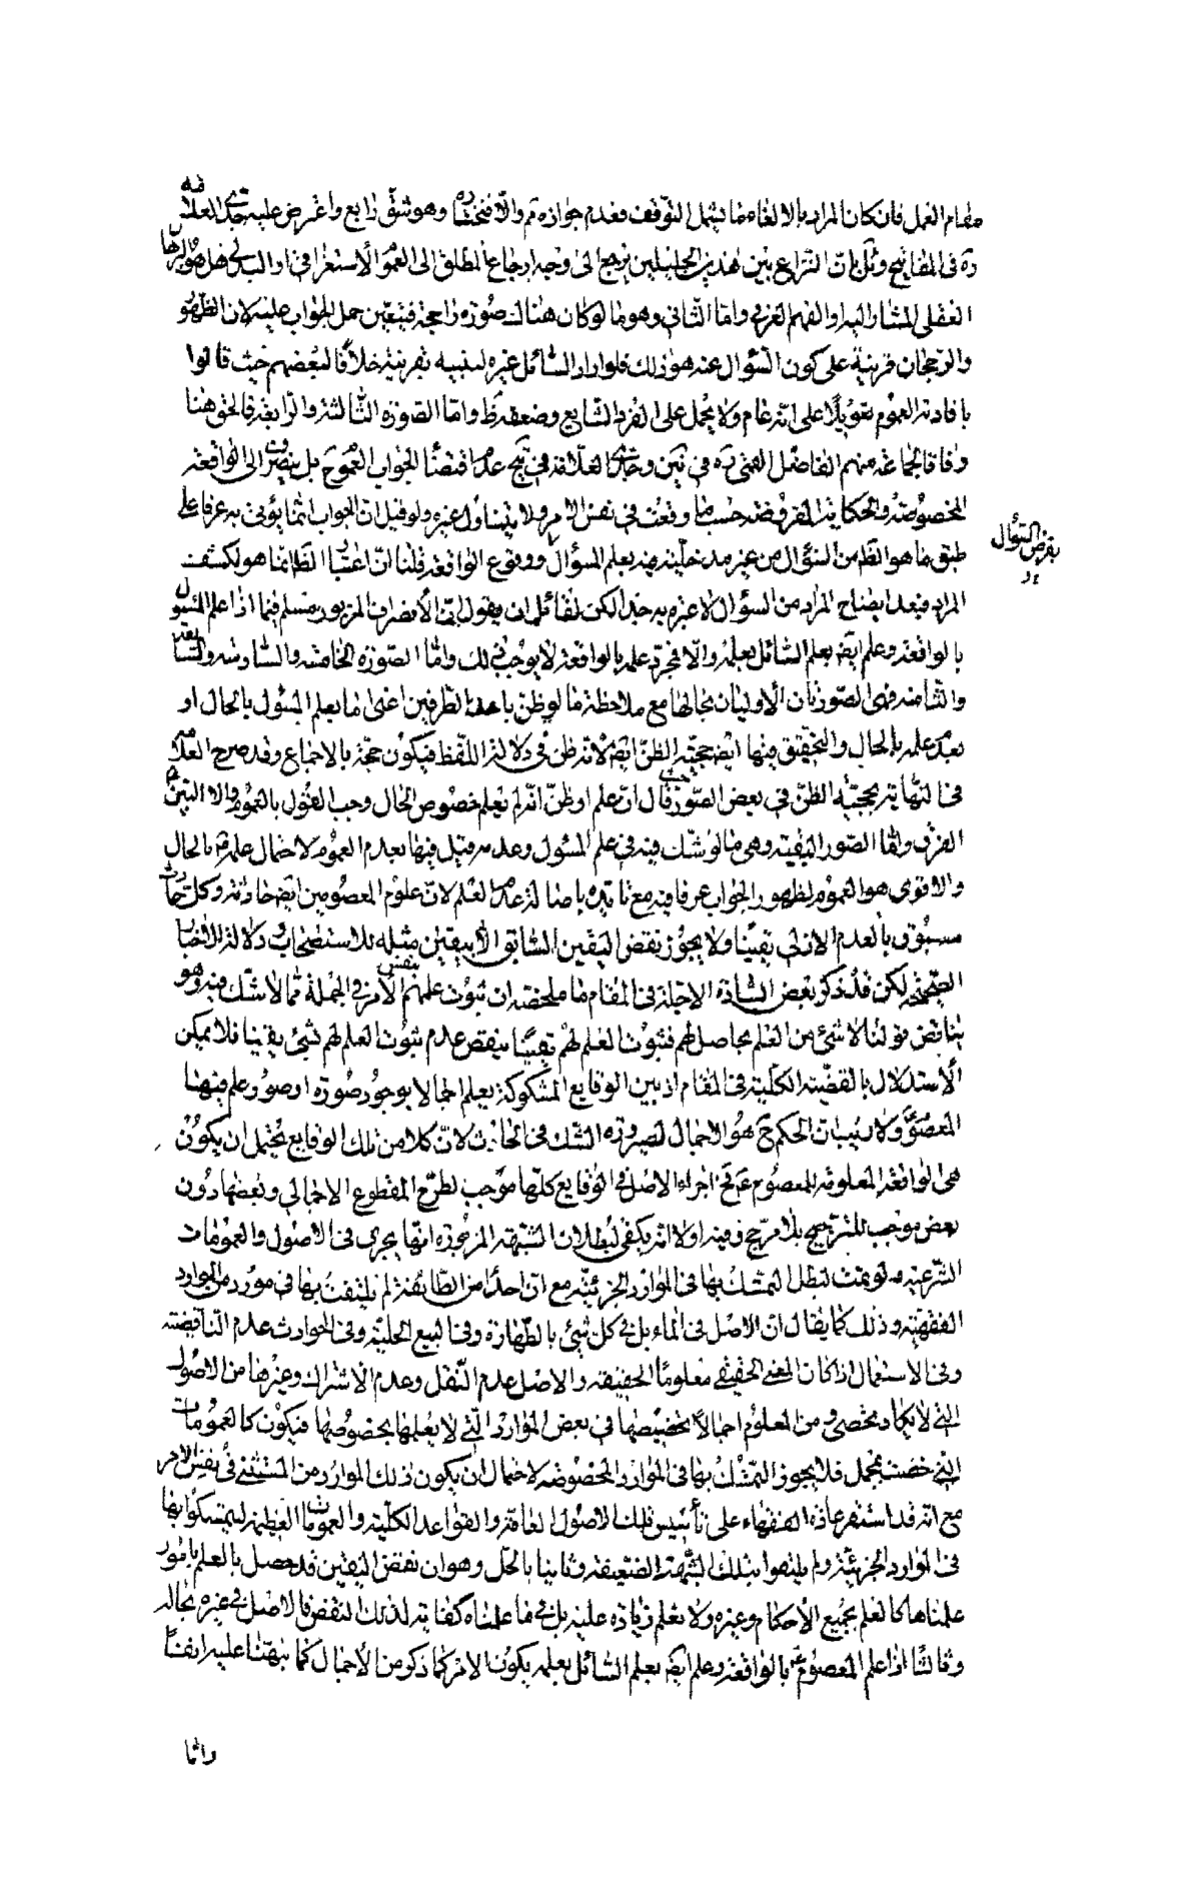 مقام العمل فان كان المراد بالالغاء ما يشمل التوقف فعدم جوازه مم والا فمختاره وهو شق رابع واعترض عليه جدى العلامة
ره فى المفاتيح وثمرات النزاع بين هذين الجليلين يرجع الى وجه ارجاع المطلق الى العموم الاستغراقى او البدلى هل هو
العقلى المشار اليه او الفهم العرفى واما الثانى وهو ما لو كان هناك صورة راجحة فيتعين حمل الجواب عليه لان الظهور
والرجحان قرينة على كون السؤال عنه هو ذلك فلو اراد السائل غيره لنبه بقرينة خلافا لبعضهم حيث قالوا
بافادته العموم تعويلا على انه عام ولا يحمل على الفرد الشايع وضعفه ظ واما الصورة الثالثة والرابعة فالحق هنا
وفاقا لجماعة منهم الفاضل القمى ره فى نين وجدى العلامة فى تيج عدم اقتضاء الجواب العموم بل ينصرف الى الواقعة
المخصوصة والحكاية المفروضة حسب ما وقعت فى نفس الامر ولا يتناول غيره ولو قيل ان الجواب انما يؤتى به عرفا على
طبق ما هو الظ من السؤال من غير مدخلية فيه يعلم المسؤال ووقوع الواقعة قلنا ان اعتبار الظ انما هو لكشف
المراد فبعد ايضاح المراد من السؤال لا عبرة به جدا لكن لقائل ان يقول ان الانصراف المزبور مسلم فيما اذا علم المسئول
بالواقعة وعلم ايضا بعلم السائل بعلمه والا فمجرد علمه بالواقعة لا يوجب ذلك واما الصورة الخامسة والسادسة والسابعة
والثامنة فهى الصورتان الاوليان بحالها مع ملاحظة ما لو ظن باحد الطرفين اعنى اما بعلم المسئول بالحال او
بعدم علمه بالحال والتحقيق فيها ايضا حجية الظن ايضا لانه ظن فى دلالة اللفظ فيكون حجة بالاجماع وقد صرح العلامة
فى النهاية بحجية الظن فى بعض الصور حيث قال ان علم او ظن انه لم يعلم خصوص الحال وجب القول بالعموم والا
الفرق واما الصور البقية وهى ما لو شك فيه فى علم المسئول وعدمه قيل فيها بعدم العموم لاحتمال علمه بالحال
والاقوى هو العموم لظهور الجواب عرفا فيه مع تاييده باصالة عدم العلم لان علوم المعصومين ايضا حادثة وكل حادث
مسبوق بالعدم الازلى يقينا ولا يجوز نقض اليقين السابق الا بيقين مثله للاستصحاب ودلالة الاخبار
الصحيحة لكن قد ذكر بعض السادة الاجلة فى المقام ما ملخصه ان ثبوت علمهم بنفس الامر فى الجملة مما لا شك فيه وهو
يناقض قولنا لا شئ من العلم بحاصل لهم فثبوت العلم لهم يقينا ينقض عدم ثبوت العلم لهم بشئ يقينا فلا يمكن
الاستدلال بالقضية الكلية فى المقام اذ بين الوقايع المشكوكة يعلم اجمالا بوجود صورة او صور علم فيها
المعصوم ولا ينسحب الحكم ح هو الاجمال لصيرورة الشك فى الحادث لان كلا من تلك الوقايع يحتمل ان يكون
هى الواقعة المعلومة للمعصوم ع ح فاجراء الاصل فى الوقايع كلها موجب لطرح المقطوع الاجمالى وبعضها دون
بعض موجب للترجيح بلا مرجح وفيه اولا انه يكفى لبطلان الشبهة المزبورة انها يجرى فى الاصول والعمومات
الشرعية ولو تمت لبطل التمسك بها فى الموارد الجزئية مع ان احدا من الطائفة لم يلتفت بها فى مورد من الموارد
الفقهية وذلك كما يقال ان الاصل فى الماء بل فى كل شئ بالطهارة وفى البيع الحلية وفى الحوادث عدم الناقضية
وفى الاستعمال اذا كان المعنى الحقيقى معلوما الحقيقة والاصل عدم النقل وعدم الاشتراك وغيرها من الاصول
التى لا يكاد يحصى ومن المعلوم اجمالا تخصيصها فى بعض الموارد التى لا يعلمها بخصوصها فيكون كالعمومات
التى خصت بمجمل فلا يجوز التمسك بها فى الموارد المخصوصة لاحتمال ان يكون ذلك الموارد من المستثنى فى نفس الامر
مع انه قد استقر عادة الفقهاء على تأسيس تلك الاصول العامة والقواعد الكلية والعمومات العظيمة ليتمسكوا بها
فى الموارد الجزئية ولم يلتفتوا بتلك الشبهة الضعيفة وثانيا بالحل وهو ان نقض اليقين قد حصل بالعلم بامور
علمناها كالعلم بجميع الاحكام وغيره ولا نعلم زيادة عليه بل فى ما علمناه كفاية لذلك النقض فالاصل فى غيره بحاله
وثالثا اذا علم المعصوم ع بالواقعة وعلم ايضا بعلم السائل بعلمه يكون الامر كما ذكر من الاجمال كما نبهنا عليه ايضا
بفرض السؤال
واما